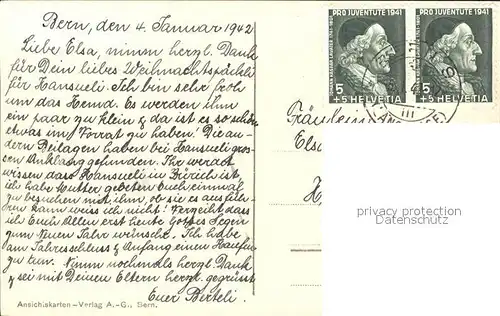 Bern, den 4. Januar 1942
Liebe Elsa, nimm herzl. Dank
für Dein liebes Weihnachtspäckli
für Hansueli. Ich bin sehr froh
um das Hemd. Es werden ihm
ein paar zu klein & da ist es so schön
etwas im Vorrat zu haben. Die an-
dern Beilagen haben bei Hansueli gros-
sen Anklang gefunden. Ihr werdet
wissen dass Hansueli in Zürich ist
ich habe Mutter gebeten Euch einmal
zu besuchen mit ihm, ob sie es ausfüh-
ren kann weiss ich nicht! Verzeiht dass
ich Euch Allen erst heute Gottes Segen
zum Neuen Jahr wünsche. Ich habe
am Jahresschluss & Anfang einen Haufen
zu tun. Nimm nochmals herzl. Dank
& sei mit Deinen Eltern herzl. gegrüsst
Euer Berteli.
Ansichtskarten-Verlag A.-G., Bern.
PRO JUVENTUTE 1941 PRO JUVENTUTE 1941
5 5
+5 HELVETIA +5 HELVETIA
III
Fräulein
Els
privacy protection
Datenschutz